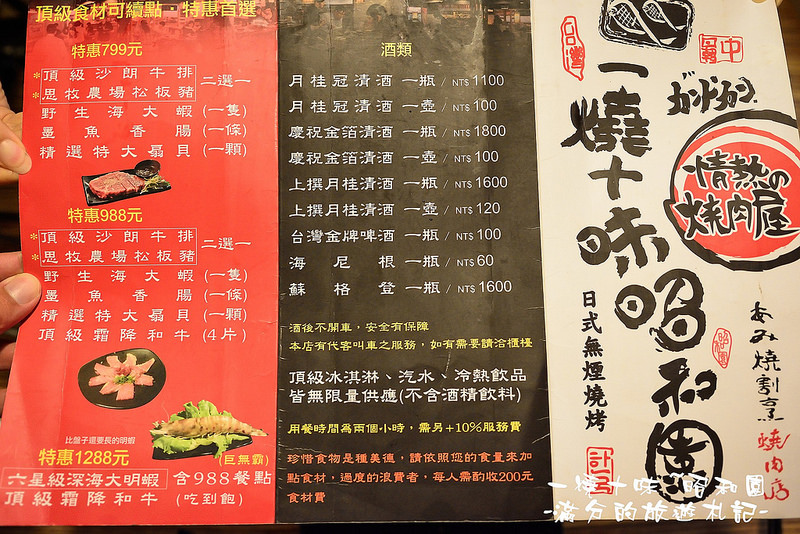 頂級食材可續點．特惠首選
特惠799元
*頂級沙朗牛排
*思牧農場松板豬
二選一
野生海大蝦(一隻)
墨魚香腸(一條)
精選特大扇貝(一顆)
特惠988元
*頂級沙朗牛排
*思牧農場松板豬
二選一
野生海大蝦(一隻)
墨魚香腸(一條)
精選特大扇貝(一顆)
頂級霜降和牛(4片)
比盤子還要長的明蝦
特惠1288元
(巨無霸)
六星級深海大明蝦 含988餐點
頂級霜降和牛(吃到飽)
酒類
月桂冠清酒 一瓶 / NT$ 1100
月桂冠清酒 一壺 / NT$ 100
慶祝金箔清酒 一瓶 / NT$ 1800
慶祝金箔清酒 一壺 / NT$ 100
上撰月桂清酒 一瓶 / NT$ 1600
上撰月桂清酒 一壺 / NT$ 120
台灣金牌啤酒 一瓶 / NT$ 100
海尼根 一瓶 / NT$ 60
蘇格登 一瓶 / NT$ 1600
酒後不開車，安全有保障
本店有代客叫車之服務，如有需要請洽櫃檯
頂級冰淇淋、汽水、冷熱飲品
皆無限量供應(不含酒精飲料)
用餐時間為兩個小時，需另+10%服務費
珍惜食物是種美德，請依照您的食量來加
點食材，過度的浪費者，每人需酌收200元
食材費
台灣
一燒十味昭和園
日式無煙燒烤
情熱の
焼肉屋
昭和園
あみ焼割烹
焼肉店
一燒十味 昭和園
-滿分的旅遊札記-